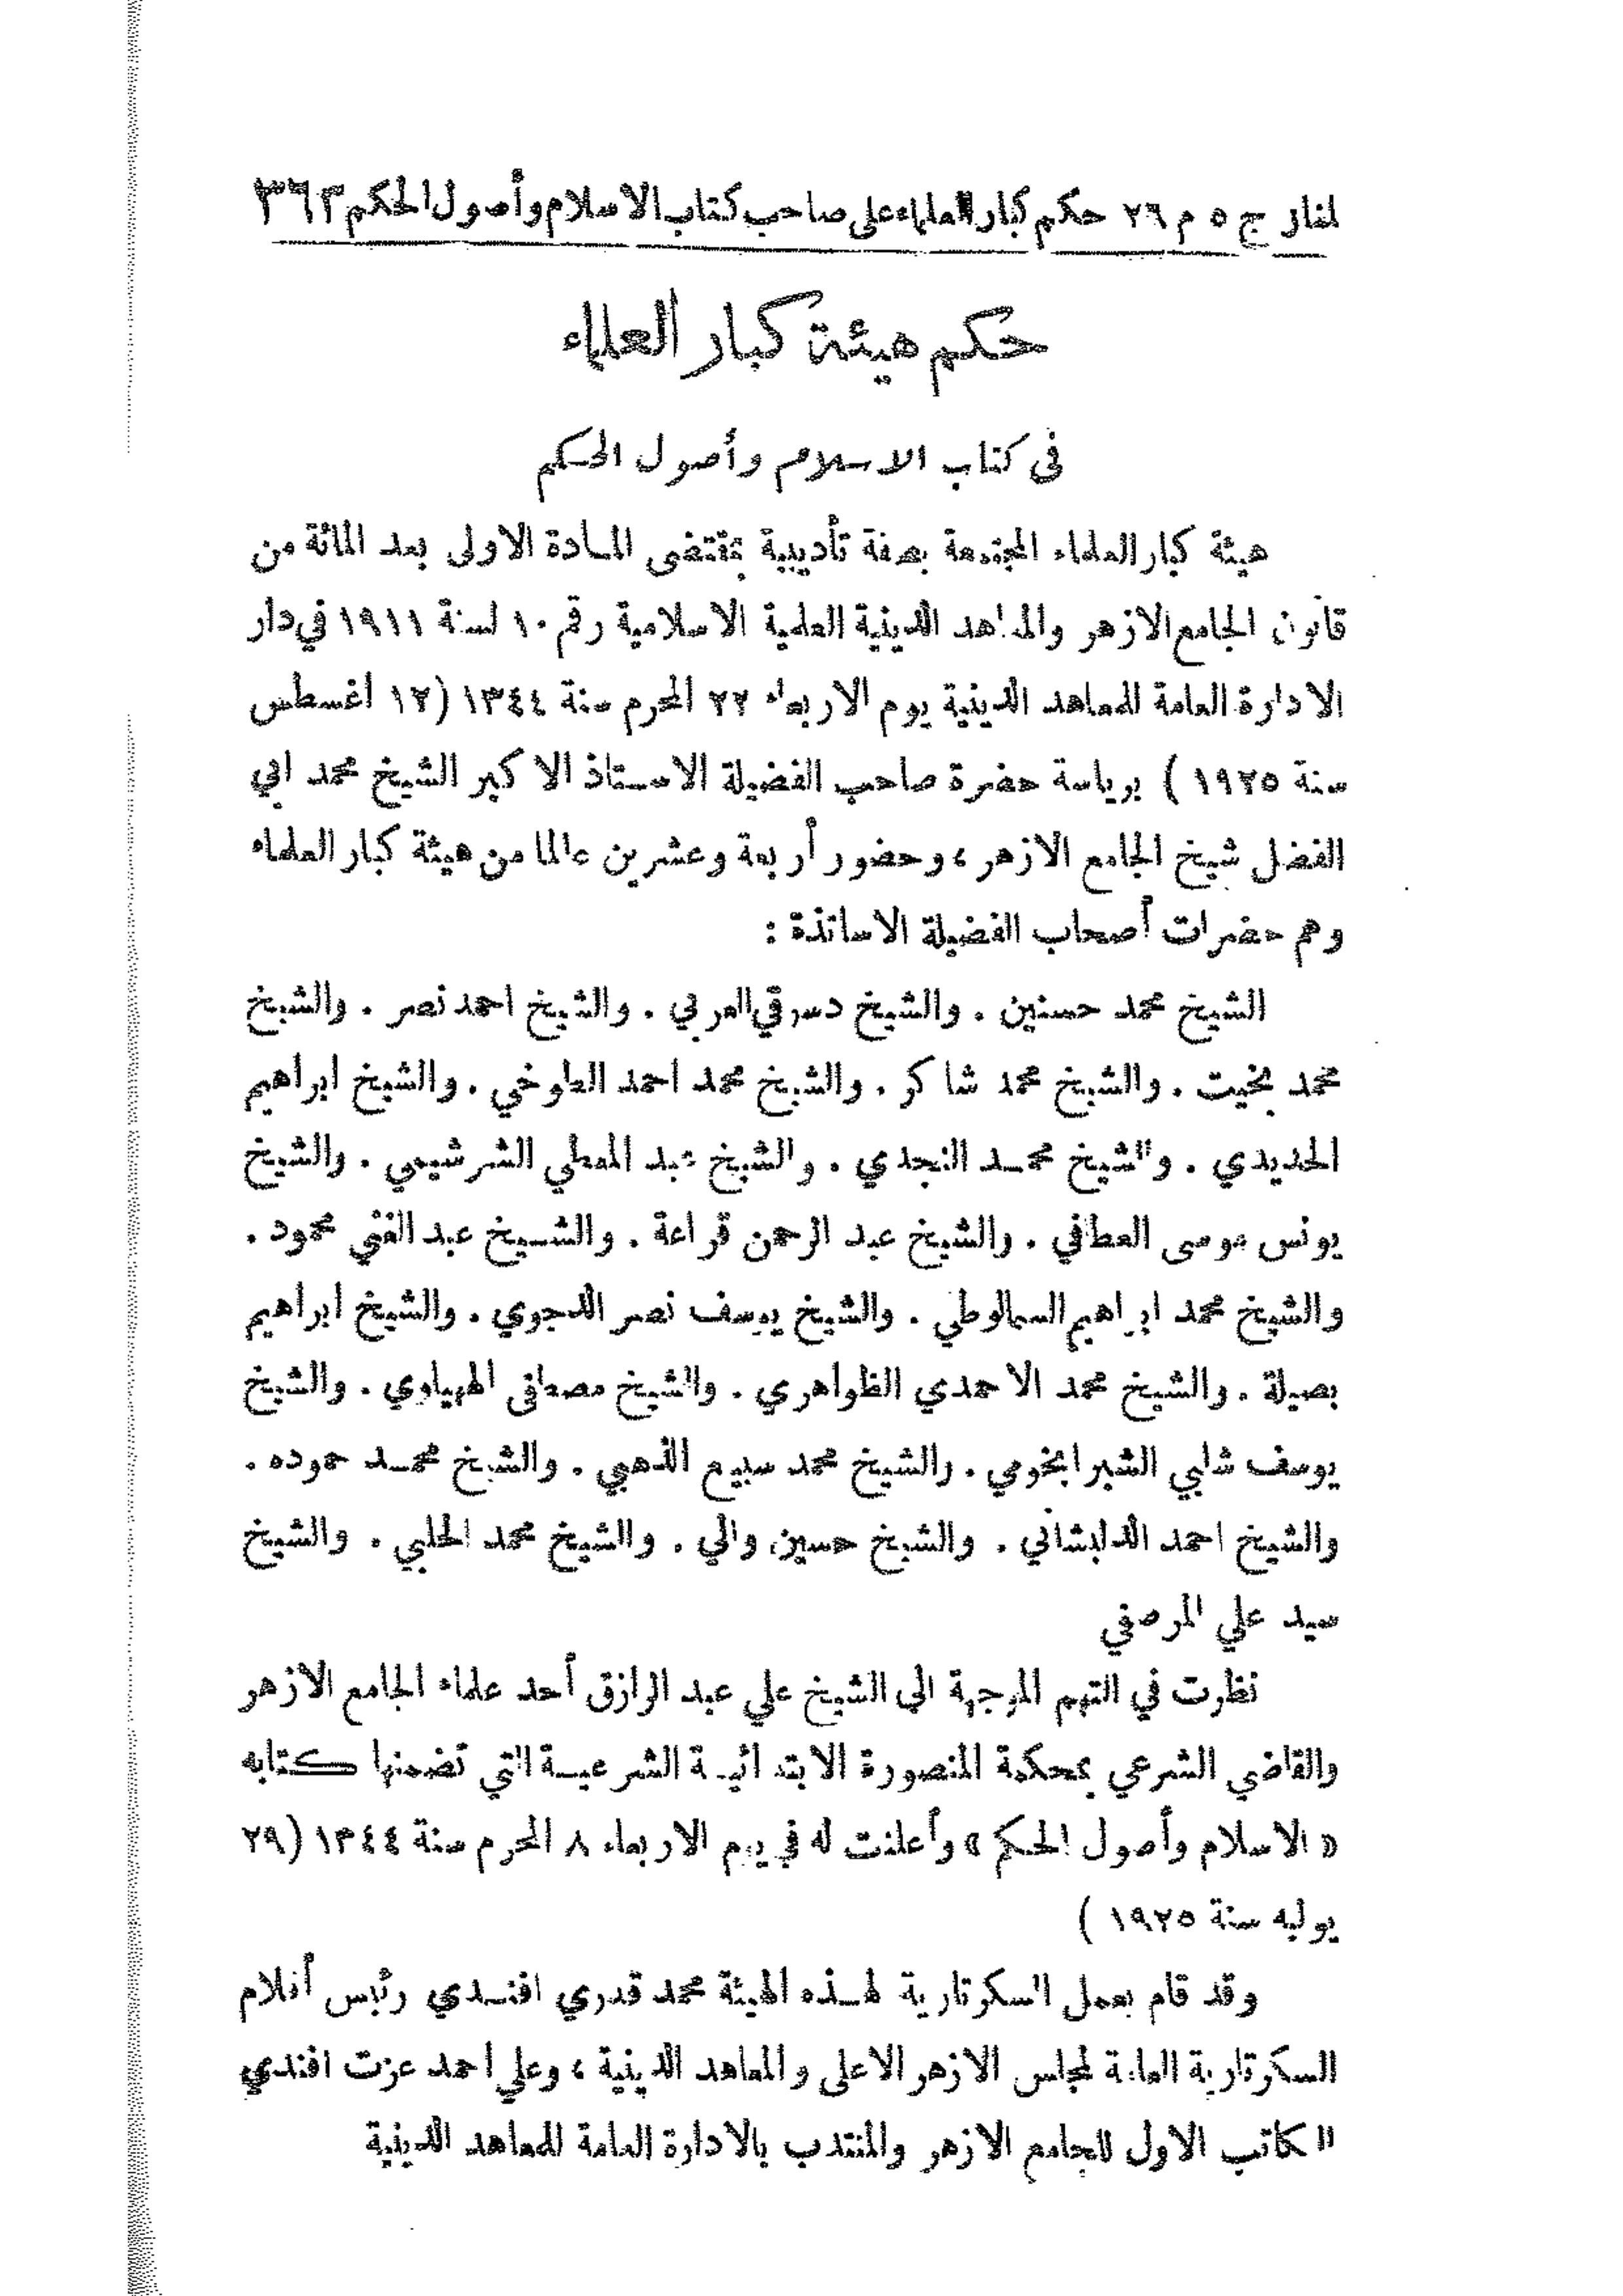 لمنار ج ٥ م ٢٦ حكم كبار العلماء على صاحب كتاب الاسلام وأصول الحكم ٣٦٣
حكم هيئة كبار العلماء
في كتاب الاسلام وأصول الحكم
هيئة كبار العلماء المجتمعة بصفة تأديبية بمقتضى المادة الاولى بعد المائة من
قانون الجامع الازهر والمعاهد الدينية العلمية الاسلامية رقم ١٠ لسنة ١٩١١ في دار
الادارة العامة للمعاهد الدينية يوم الاربعاء ٢٢ المحرم سنة ١٣٤٤ (١٢ اغسطس
سنة ١٩٢٥ ) برياسة حضرة صاحب الفضيلة الاستاذ الاكبر الشيخ محمد ابي
الفضل شيخ الجامع الازهر ، وحضور أربعة وعشرين عالما من هيئة كبار العلماء
وهم حضرات أصحاب الفضيلة الاساتذة :
الشيخ محمد حسنين . والشيخ دسوقي العربي . والشيخ احمد نصر . والشيخ
محمد بخيت . والشيخ محمد شاكر . والشيخ محمد احمد الطوخي . والشيخ ابراهيم
الحديدي . والشيخ محمد النجدي . والشيخ عبد المعطي الشرشيمي . والشيخ
يونس موسى العطافي . والشيخ عبد الرحمن قراعة . والشيخ عبد الغني محمود .
والشيخ محمد ابراهيم السمالوطي . والشيخ يوسف نصر الدجوي . والشيخ ابراهيم
بصيلة . والشيخ محمد الاحمدي الظواهري . والشيخ مصطفى الههياوي . والشيخ
يوسف شلبي الشبرابخومي . والشيخ محمد سبيع الذهبي . والشيخ محمد حموده .
والشيخ احمد الدلبشاني . والشيخ حسين والي . والشيخ محمد الحلبي . والشيخ
سيد علي المرصفي
نظرت في التهم الموجهة الى الشيخ علي عبد الرازق أحد علماء الجامع الازهر
والقاضي الشرعي بمحكمة المنصورة الابتدائية الشرعية التي تضمنها كتابه
« الاسلام وأصول الحكم » وأعلنت له في يوم الاربعاء ٨ المحرم سنة ١٣٤٤ (٢٩
يوليه سنة ١٩٢٥ )
وقد قام بعمل السكرتارية لهذه الهيئة محمد قدري افندي رئيس أقلام
السكرتارية العامة لمجلس الازهر الاعلى والمعاهد الدينية ، وعلي احمد عزت افندي
الكاتب الاول للجامع الازهر والمنتدب بالادارة العامة للمعاهد الدينية